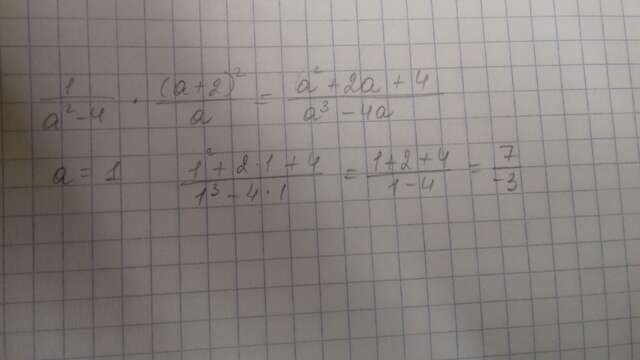 1/(a²-4) · (a+2)²/a = (a²+2a+4)/(a³-4a)
a=1 (1²+2·1+4)/(1³-4·1) = (1+2+4)/(1-4) = 7/-3